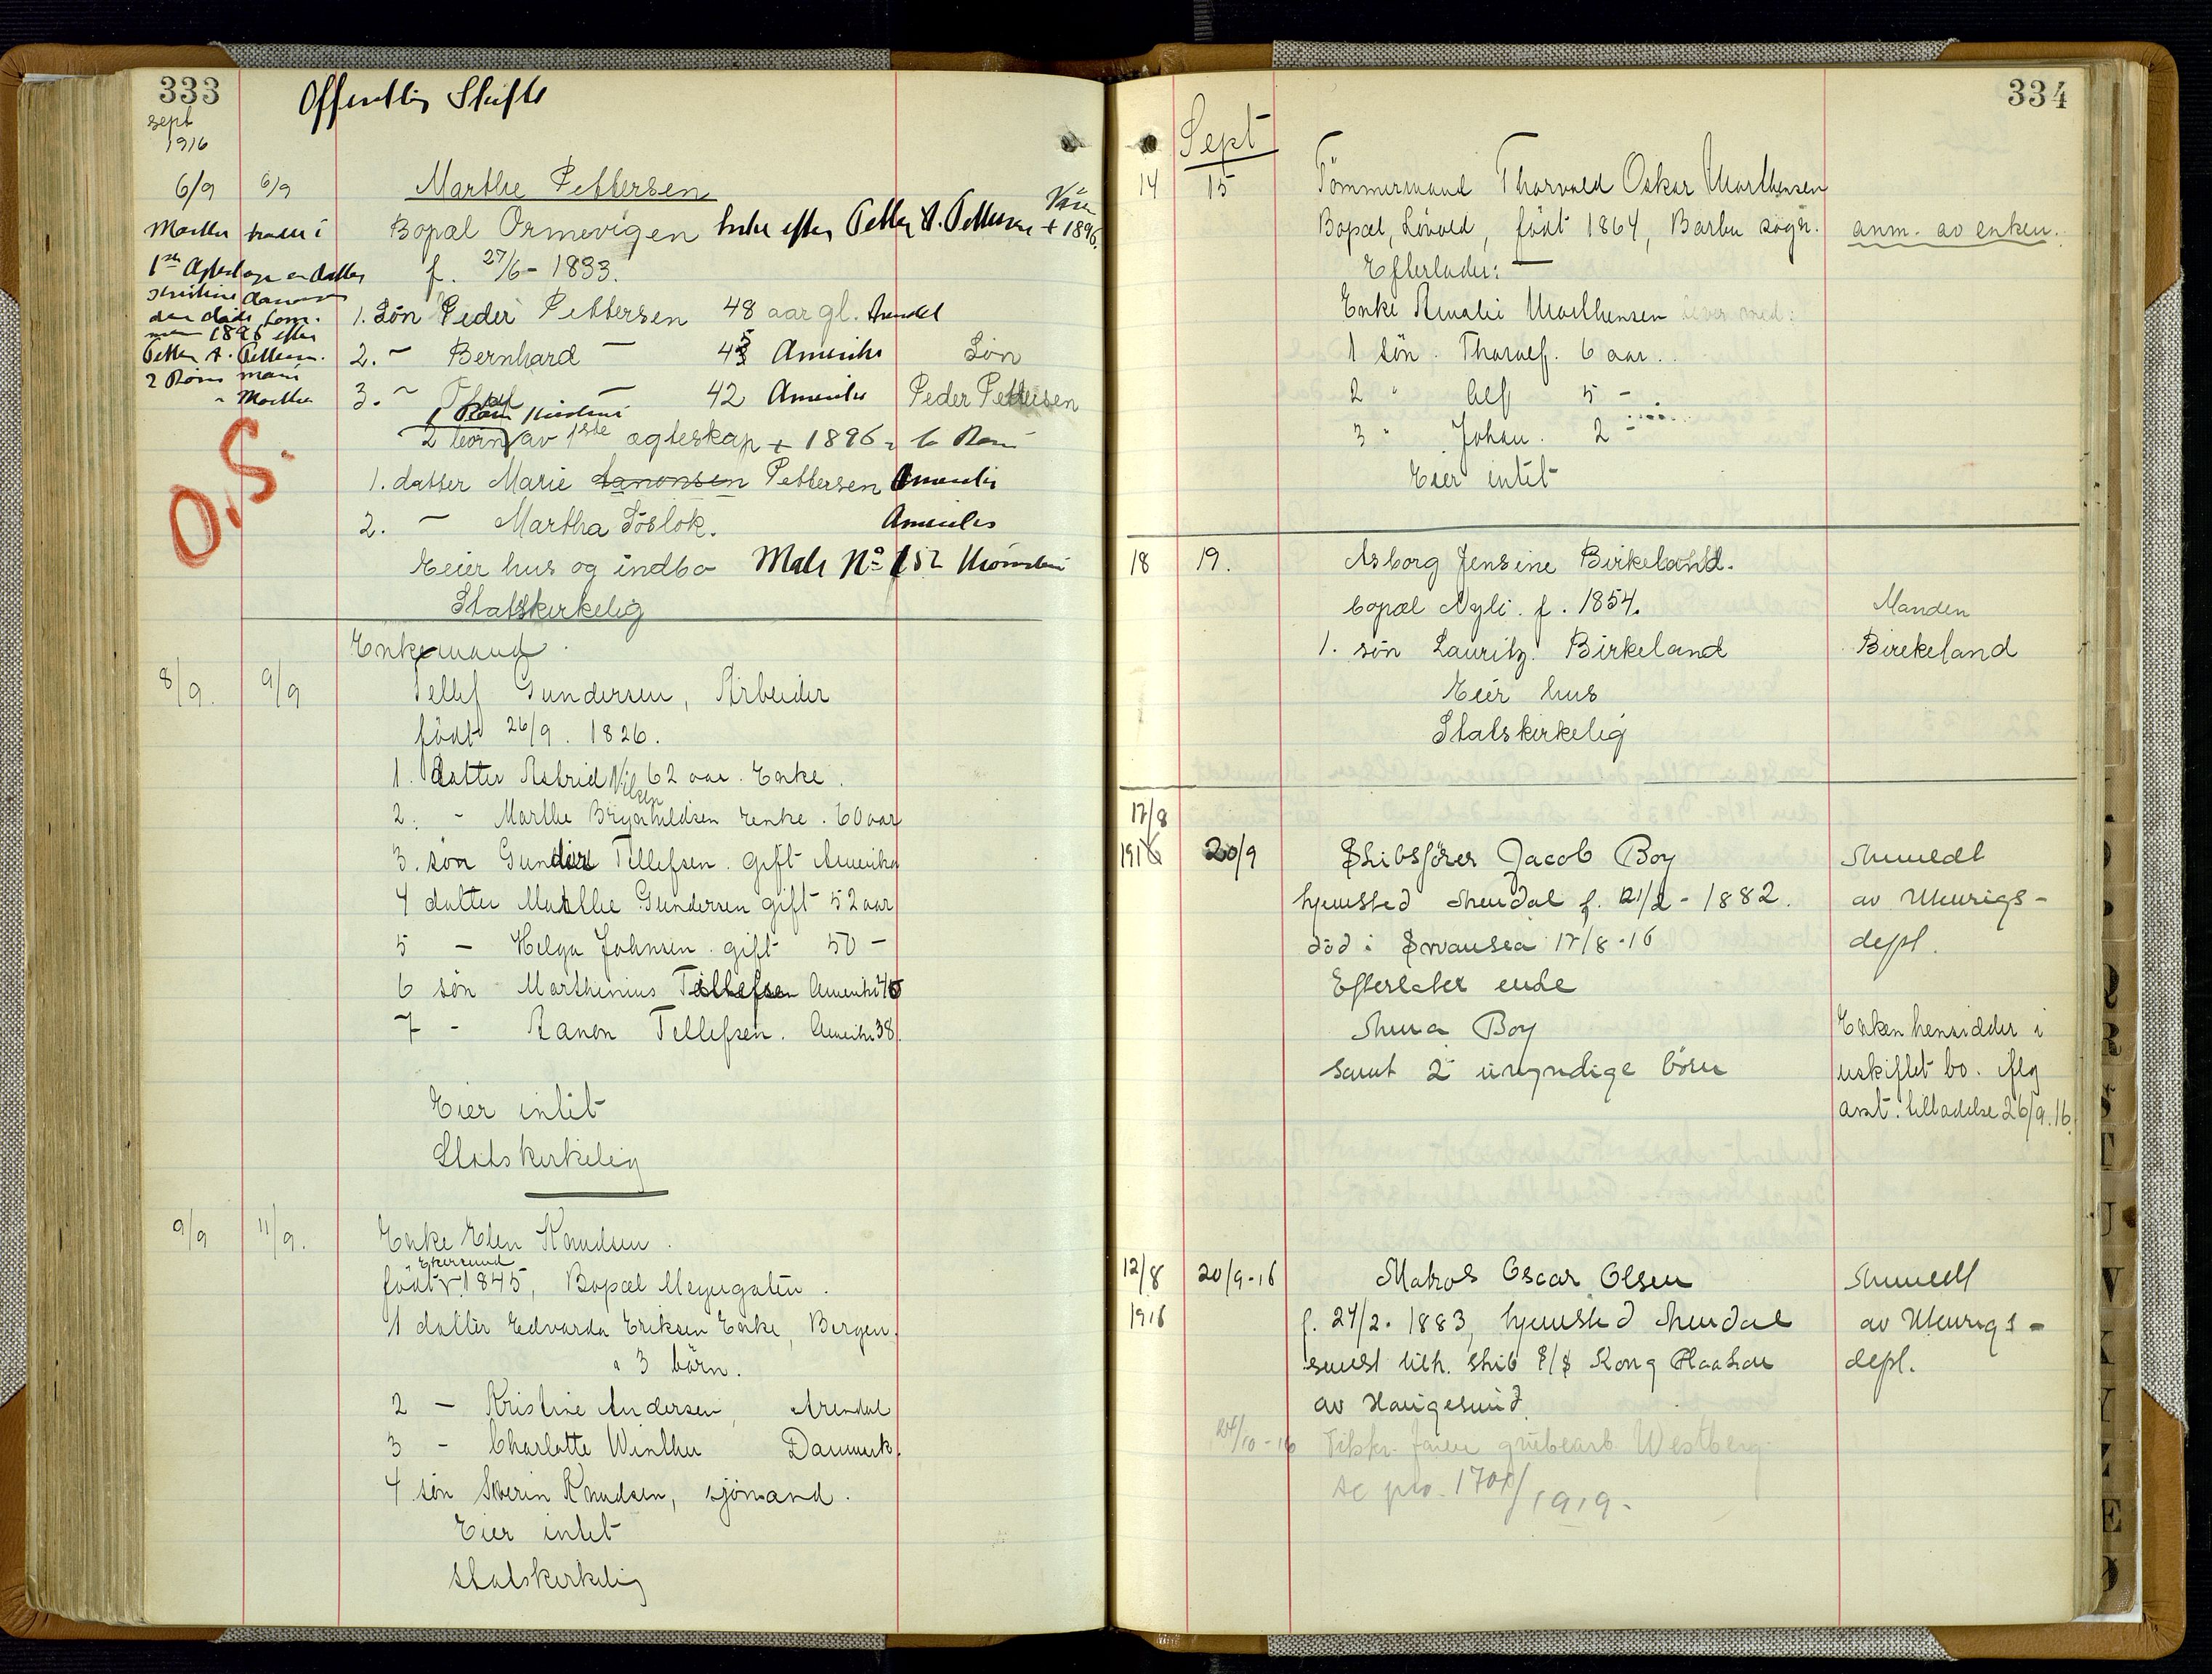 333
Offentlig Skifte
sept
1916
6/9 6/9
Marthe Pettersen
Bopæl Ormevigen Enke efter Petter A. Pettersen + 1896.
f. 27/6 - 1833.
Marthe havde i
1ste Ægteskap en datter
den døde som
1896 efter
Petter A. Pettersen.
2 Børn Marie
" Marthe
O.S.
1. Søn Peder Pettersen 48 aar gl. Arendal
2. - Bernhard - 43 Amerika
3. - - 42 Amerika
Søn
Peder Pettersen
2 børn av 1ste ægteskap + 1896
1. datter Marie Aanonsen Pettersen Amerika
2. - Martha Töslok. Amerika
Eier hus og indbo Matr No 152
Statskirkelig
Enkemand.
8/9. 9/9
Tellef Gundersen, Arbeider
født 26/9. 1826.
1. datter Astrid Nilsen 62 aar. Enke.
2. - Marthe enke. 60 aar
3. søn Gunder Tellefsen. gift Amerika
4 datter Marthe Gundersen gift 52 aar
5 - Helga Johnsen. gift 50 -
6 søn Marthinius Tellefsen Amerika 40
7 - Aanon Tellefsen. Amerika 38.
Eier intet
Statskirkelig
9/9 11/9.
Enke Elen Knudsen.
Ekersund
født 1845, Bopæl Meyergaten.
1 datter Edvarda Eriksen Enke, Bergen.
" 3 børn.
2 - Kristine Andersen, Arendal
3 - Charlotte Winther Danmark.
4. søn Severin Knudsen, sjømand.
Eier intet
Statskirkelig
334
Sept
14 15
Tømmermand Thorvald Oskar Marthensen
Bopæl, Løvold, født 1864, Barbu sogn. anm. av enken.
Efterlader:
Enke Amalie Marthensen lever med:
1 søn. Tharalf. 6 aar.
2 " Alf 5 -
3 " Johan. 2 -
Eier intet
18 19.
Asborg Jensine Birkeland.
bopæl Nyli. f. 1854. Manden
1. søn Lauritz. Birkeland Birekeland
Eier hus
Statskirkelig
17/8
1916 20/9 Skibsfører Jacob Boy Anmeldt
hjemsted Arendal f. 21/2 - 1882. av Utenrigs-
død i Swansea 17/8-16 dept.
Efterlater enke
Anna Boy
samt 2 umyndige børn
Enken hensidder i
uskiftet bo. iflg
amt. tilladelse 26/9.16.
12/8 20/9-16 Matros Oscar Olsen Anmeldt
1916 f. 24/2. 1883, hjemsted Arendal av Utenrigs-
senest tilh. skib S/S Kong Haakon depl.
av Haugesund.
24/10-16 Westberg.
1701/1919.